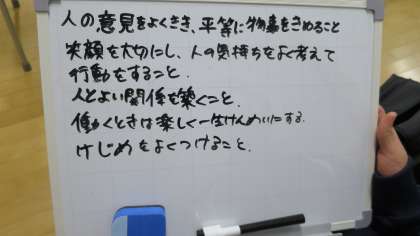 人の意見をよくきき、平等に物事をきめること
笑顔を大切にし、人の気持ちをよく考えて
行動をすること.
人とよい関係を築くこと.
働くときは楽しく一生けんめいにする.
けじめをよくつけること.